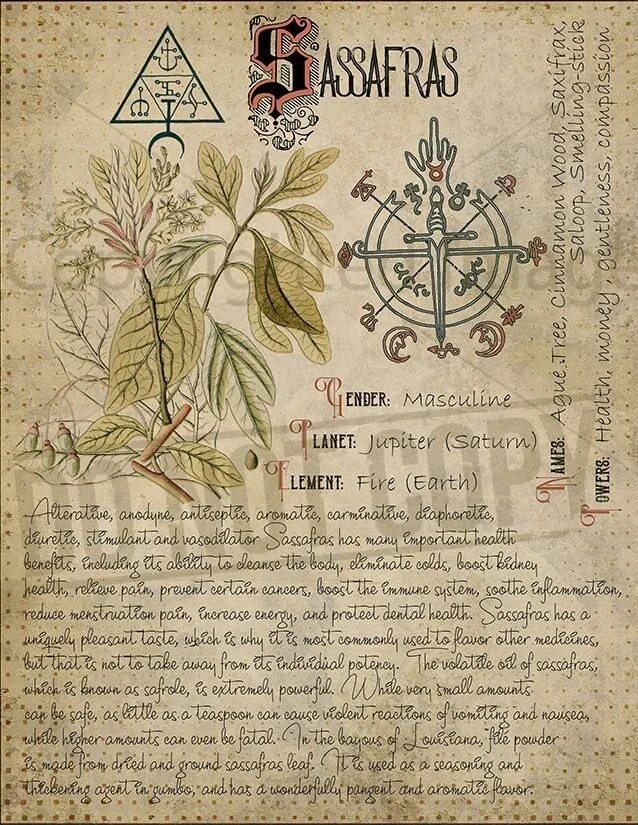 SASSAFRAS
Names: Ague Tree, Cinnamon Wood, Saxifrax,
Saloop, Smelling-stick
Powers: Health, money, gentleness, compassion
Gender: Masculine
Planet: Jupiter (Saturn)
Element: Fire (Earth)
Alterative, anodyne, antiseptic, aromatic, carminative, diaphoretic,
diuretic, stimulant and vasodilator Sassafras has many important health
benefits, including its ability to cleanse the body, eliminate colds, boost kidney
health, relieve pain, prevent certain cancers, boost the immune system, soothe inflammation,
reduce menstruation pain, increase energy, and protect dental health. Sassafras has a
uniquely pleasant taste, which is why it is most commonly used to flavor other medicines,
but that is not to take away from its individual potency. The volatile oil of sassafras,
which is known as safrole, is extremely powerful. While very small amounts
can be safe, as little as a teaspoon can cause violent reactions of vomiting and nausea,
while higher amounts can even be fatal. In the bayous of Louisiana, file powder
is made from dried and ground sassafras leaf. It is used as a seasoning and
thickening agent in gumbo, and has a wonderfully pangent and aromatic flavor.
DO NOT COPY